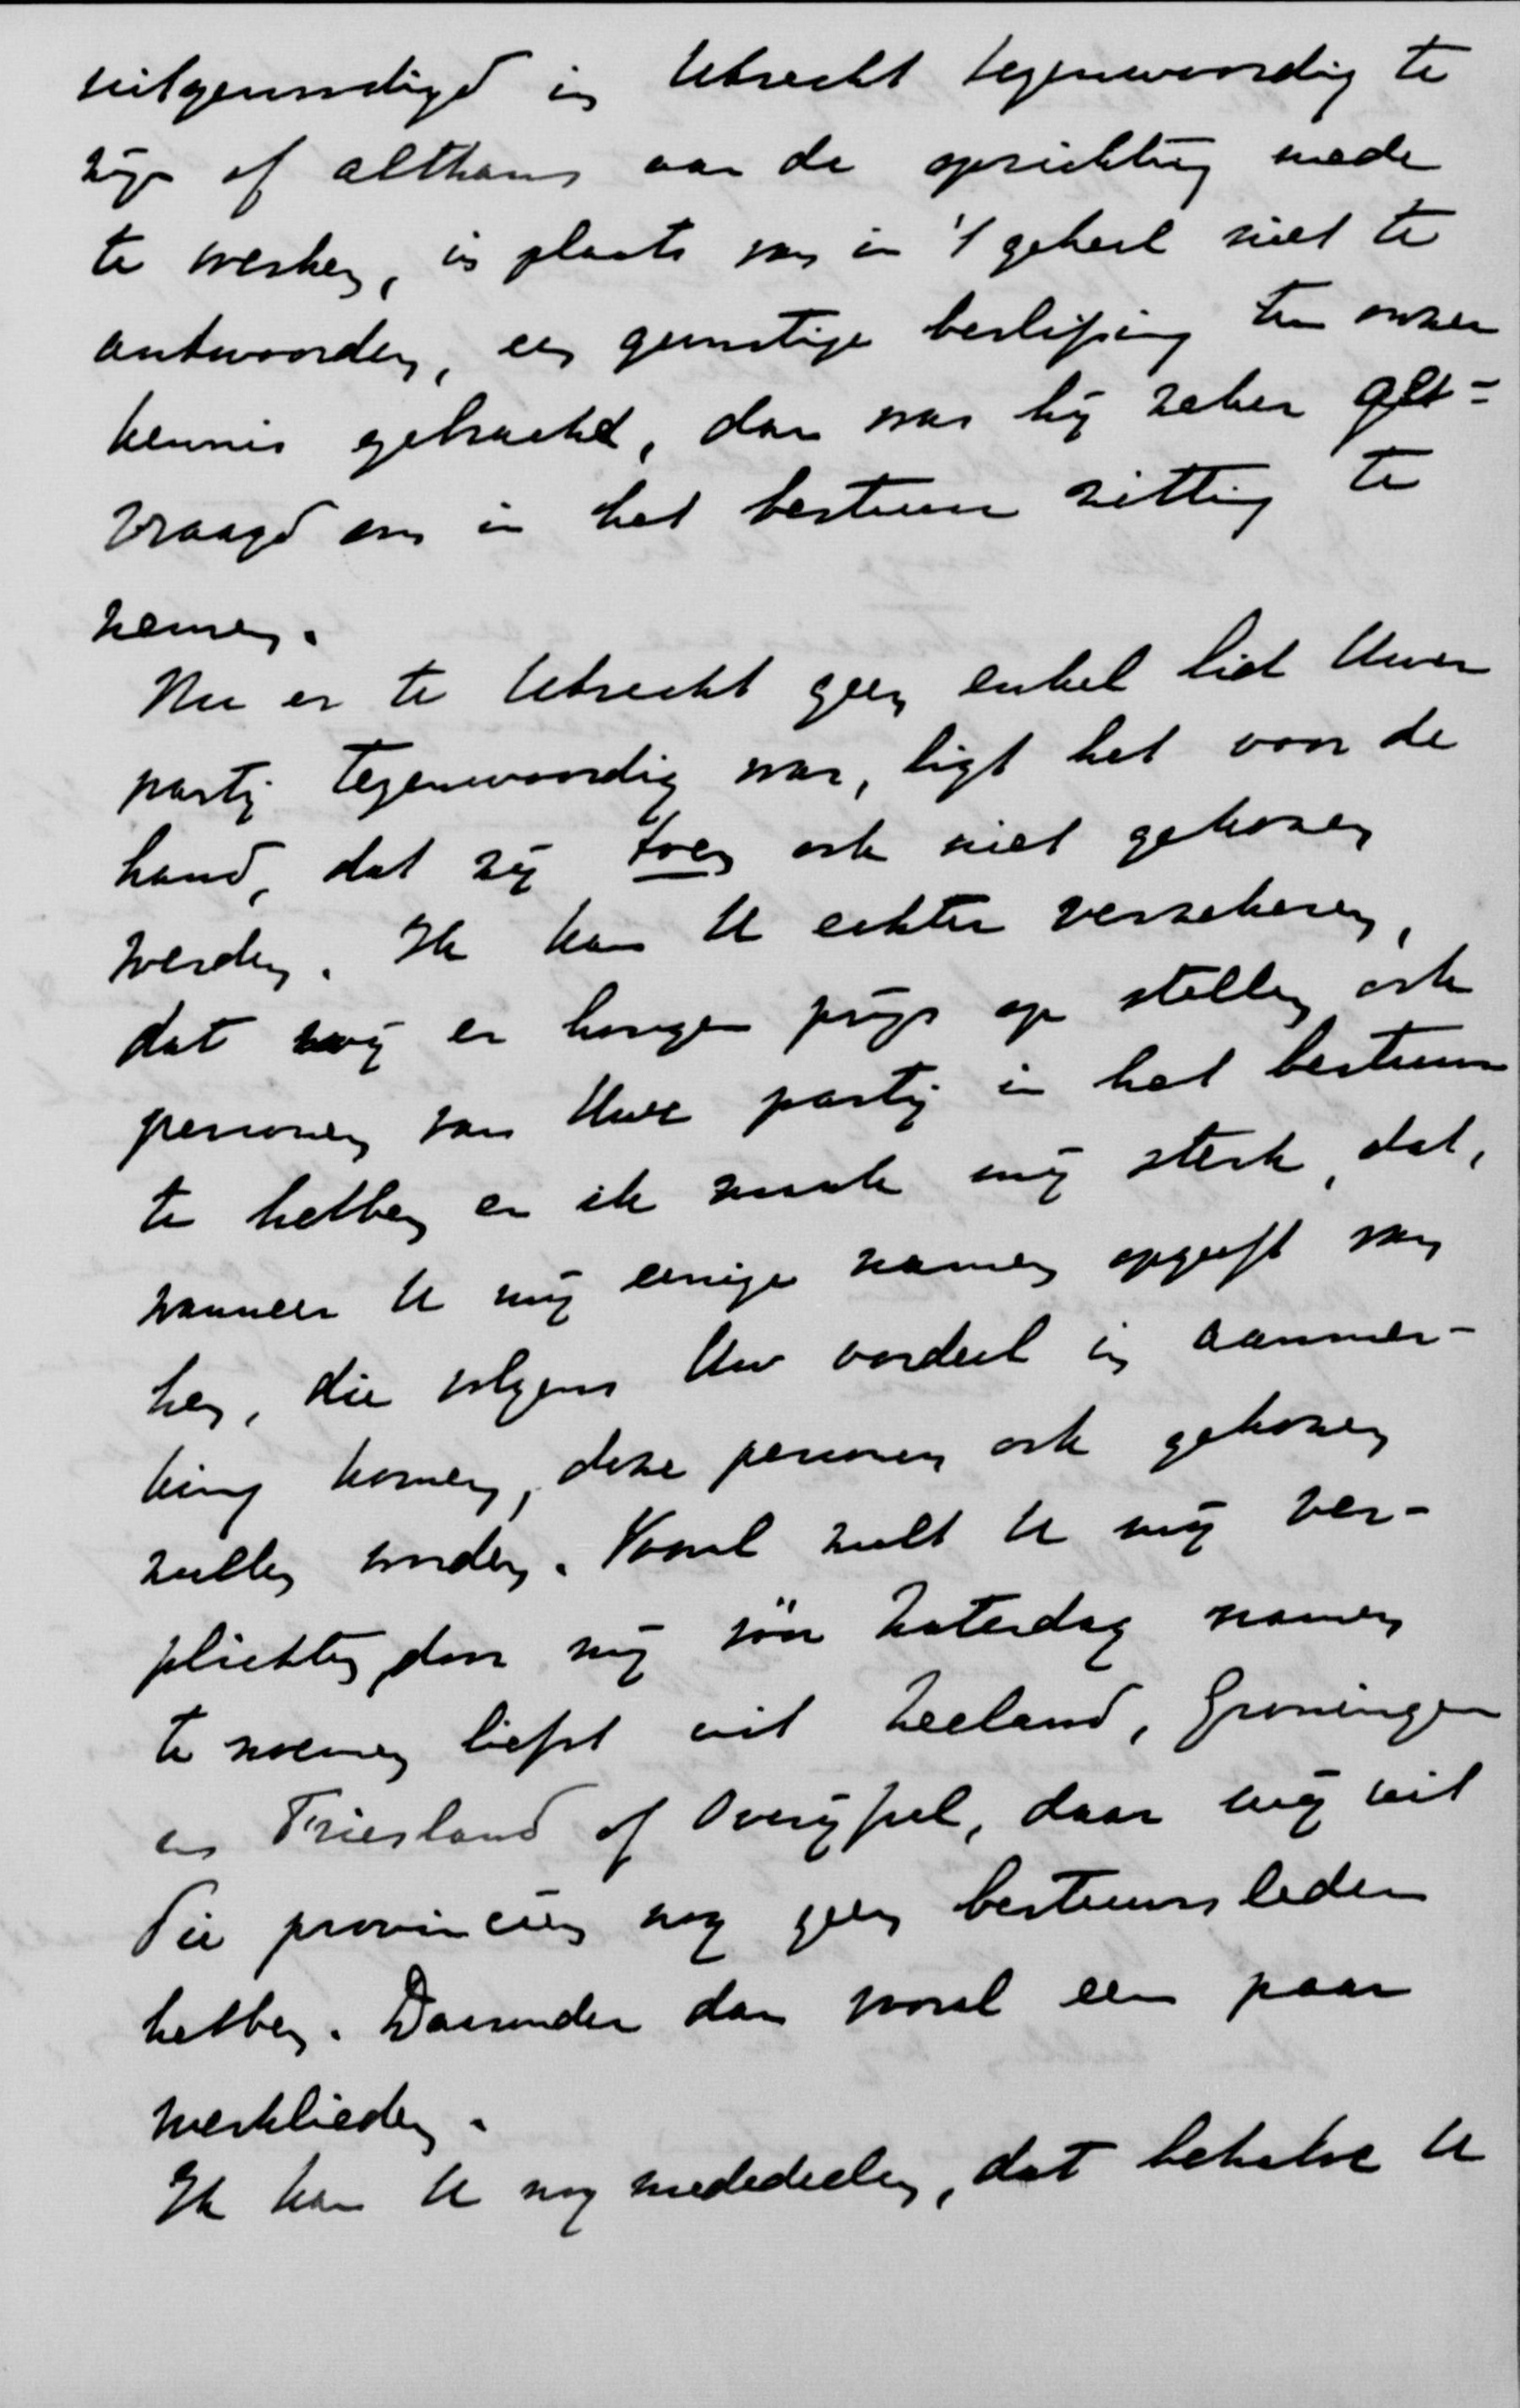 uitgenoodigd in Utrecht tegenwoordig te
zijn of althans aan de oprichting mede
te werken, in plaats van in 't geheel niet te
antwoorden, een gunstige beslissing ter onzer
kennis gebracht, dan was hij zeker ge-
vraagd om in het bestuur zitting te
nemen.
Nu er te Utrecht geen enkel lid Uwer
partij tegenwoordig was, ligt het voor de
hand, dat zij toen ook niet gekozen
werden. Ik kan U echter verzekeren,
dat wij er hoogen prijs op stellen ook
personen van Uwe partij in het bestuur
te hebben en ik maak mij sterk, dat,
wanneer U mij eenige namen opgeeft van
hen, die volgens Uw oordeel in aanmer-
king komen, deze personen ook gekozen
zullen worden. Vooral zult U mij ver-
plichten door mij vóór Zaterdag namen
te noemen liefst uit Zeeland, Groningen
en Friesland of Overijssel, daar wij uit
die provinciën nog geen bestuursleden
hebben. Daaronder dan vooral een paar
werklieden.
Ik kan U nog mededeelen, dat behalve U